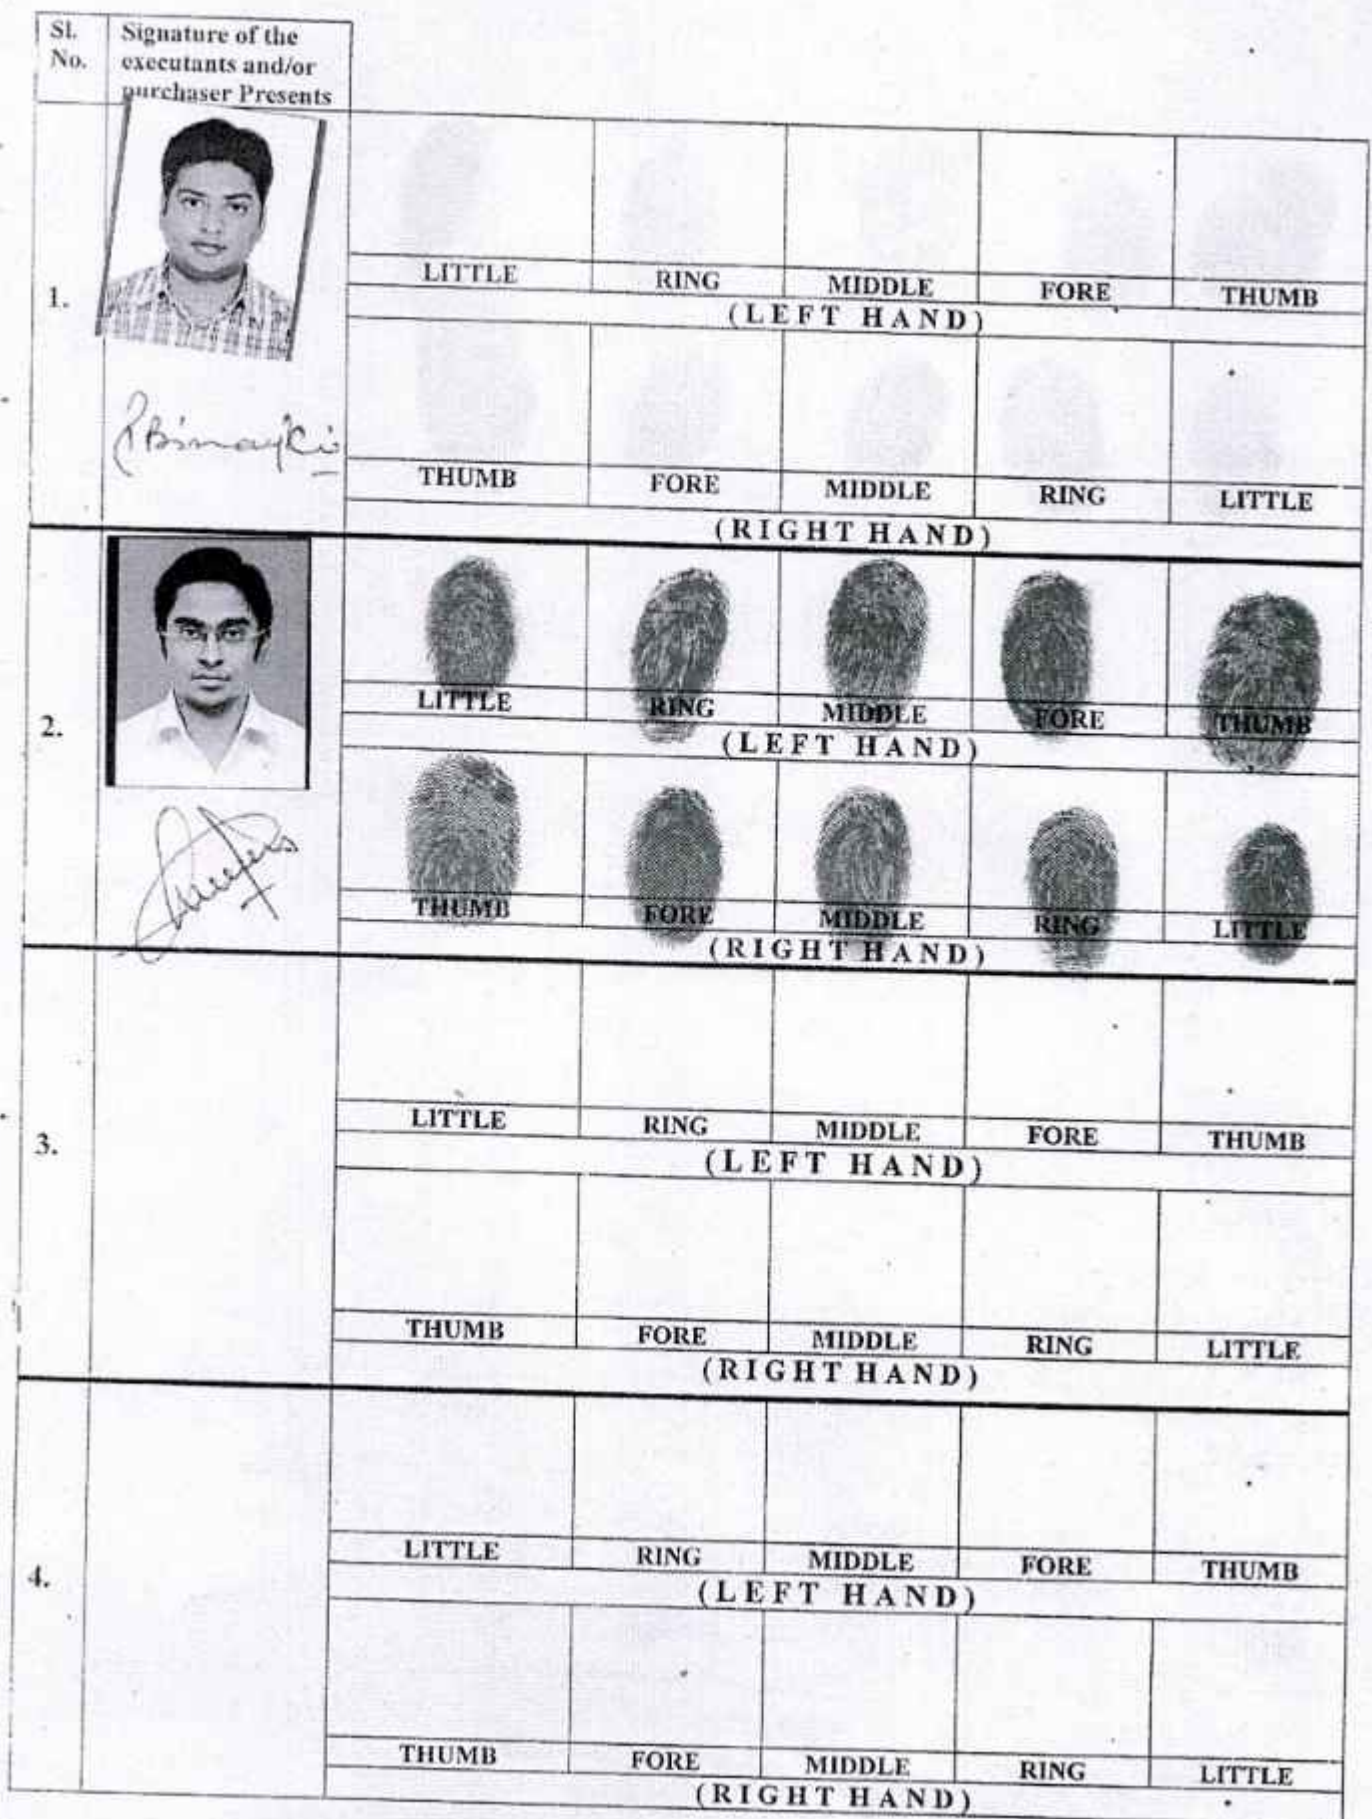 Sl.
No.
Signature of the
executants and/or
purchaser Presents
1.
LITTLE RING MIDDLE FORE THUMB
(LEFT HAND)
THUMB FORE MIDDLE RING LITTLE
(RIGHT HAND)
2.
LITTLE RING MIDDLE FORE THUMB
(LEFT HAND)
THUMB FORE MIDDLE RING LITTLE
(RIGHT HAND)
3.
LITTLE RING MIDDLE FORE THUMB
(LEFT HAND)
THUMB FORE MIDDLE RING LITTLE
(RIGHT HAND)
4.
LITTLE RING MIDDLE FORE THUMB
(LEFT HAND)
THUMB FORE MIDDLE RING LITTLE
(RIGHT HAND)